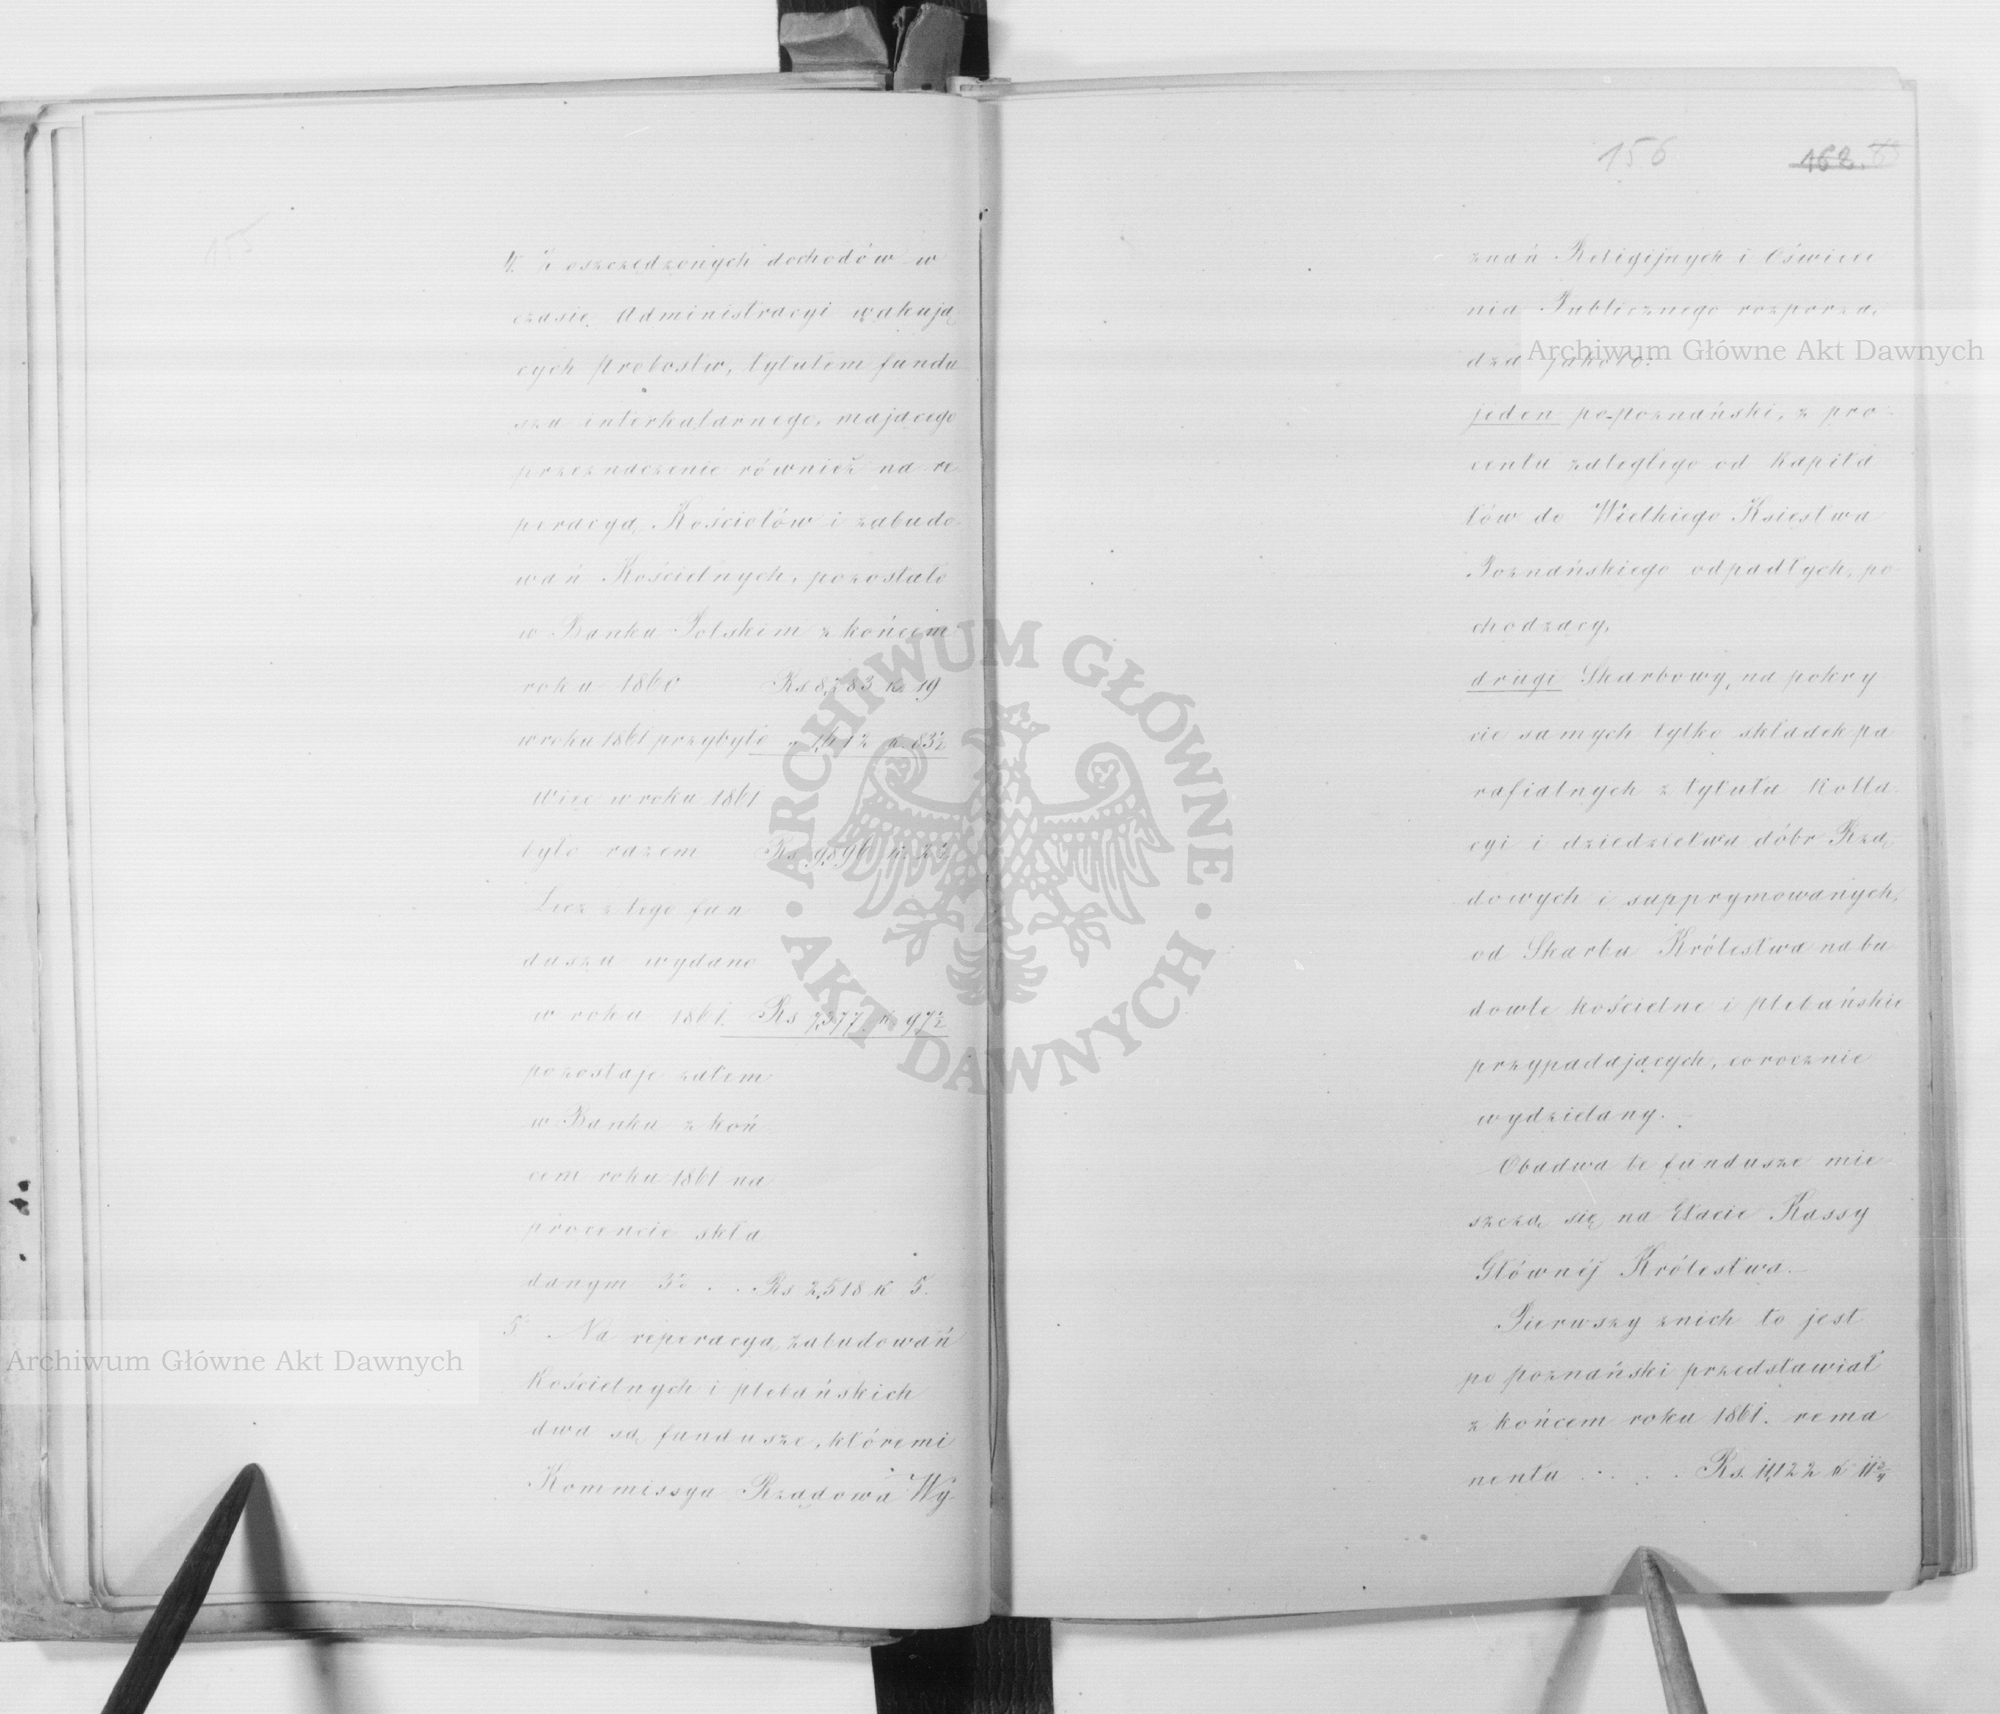 155
4. Z oszczędzonych dochodów w
czasie Administracyi wakują
cych probostw, tytułem fundu
szu interkalarnego, mającego
przeznaczenie również na re
peracyą Kościołów i zabudo-
wań Kościelnych, pozostało
w Banku Polskim z końcem
roku 1860 Rs 8,283 k 19
w roku 1861 przybyło " 1,612 k. 83½
Więc w roku 1861
było razem Rs 9,896 k. 2½
Lecz z tego fun
duszu wydano
w roku 1861. Rs 7,377. k 97½
pozostaje zatem
w Banku z koń
cem roku 1861 na
procencie skła
danym 3% . . Rs 2,518 k 5.
5 Na reperacyą zabudowań
Kościelnych i plebańskich
dwa są fundusze, któremi
Kommissya Rządowa Wy
156 162.
znań Religijnych i Oświece
nia Publicznego rozporzą,
dza jakoto:
jeden po-poznański, z pro-
centu zaległego od Kapita
łów do Wielkiego Księstwa
Poznańskiego odpadłych, po-
chodzący,
drugi Skarbowy, na pokry
cie samych tylko składek pa
rafialnych z tytułu Kolla
cyi i dziedzictwa dóbr Rzą
dowych i supprymowanych,
od Skarbu Królestwa na bu
dowle kościelne i plebańskie
przypadających, corocznie
wydzielany.
Obadwa te fundusze mie
szczą się na Etacie Kassy
Głównéj Królestwa.—
Pierwszy z nich to jest
po poznański przedstawiał
z końcem roku 1861. rema
nentu . . . . Rs. 11,122 k 11¾
Archiwum Główne Akt Dawnych
Archiwum Główne Akt Dawnych
ARCHIWUM GŁÓWNE
AKT DAWNYCH